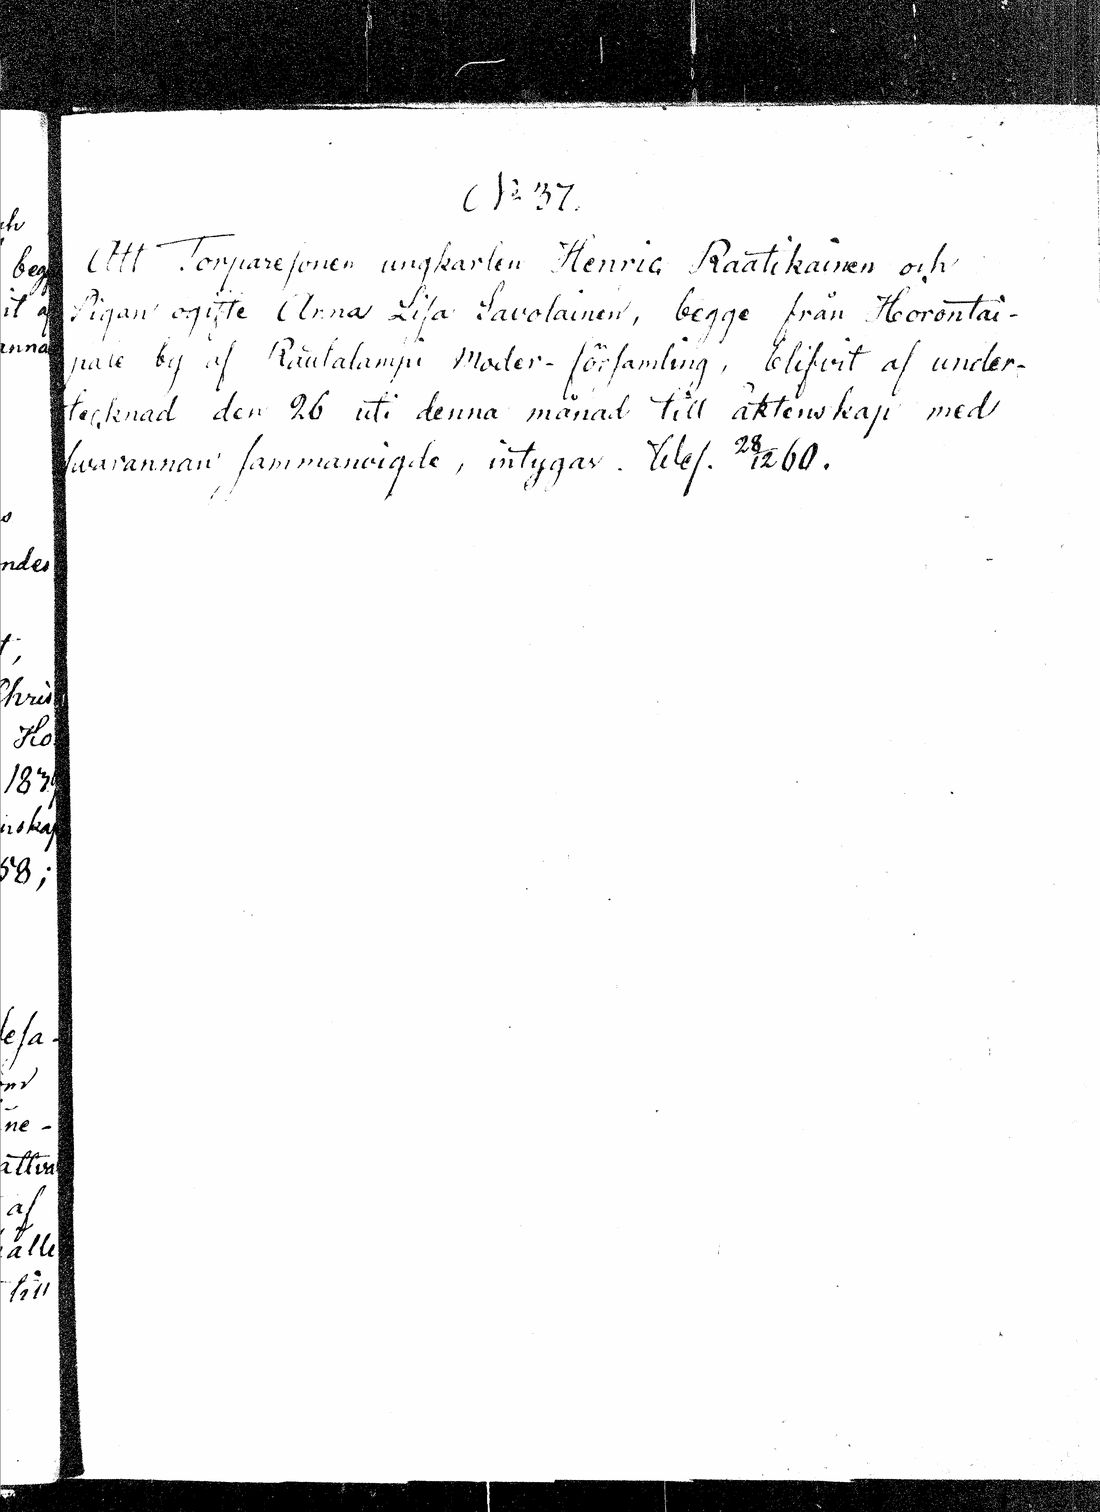 № 37.
Att Torparesonen ungkarlen Henric Raatikainen och
Pigan ogifte Anna Lisa Savolainen, begge från Horontai-
pale by af Rautalampi Moder-församling, blifvit af under-
tecknad den 26 uti denna månad till äktenskap med
hvarannan sammanvigde, intygar. 28/12 60.
ndes
t,
Chris
Ho
183
nskap
58;
ne-
af
till